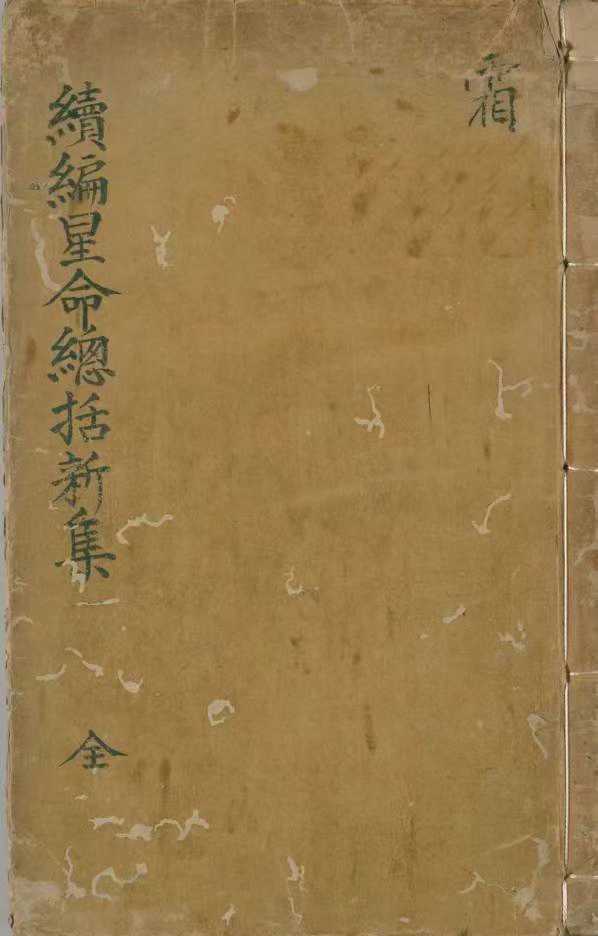 霜
續編星命總括新集
全